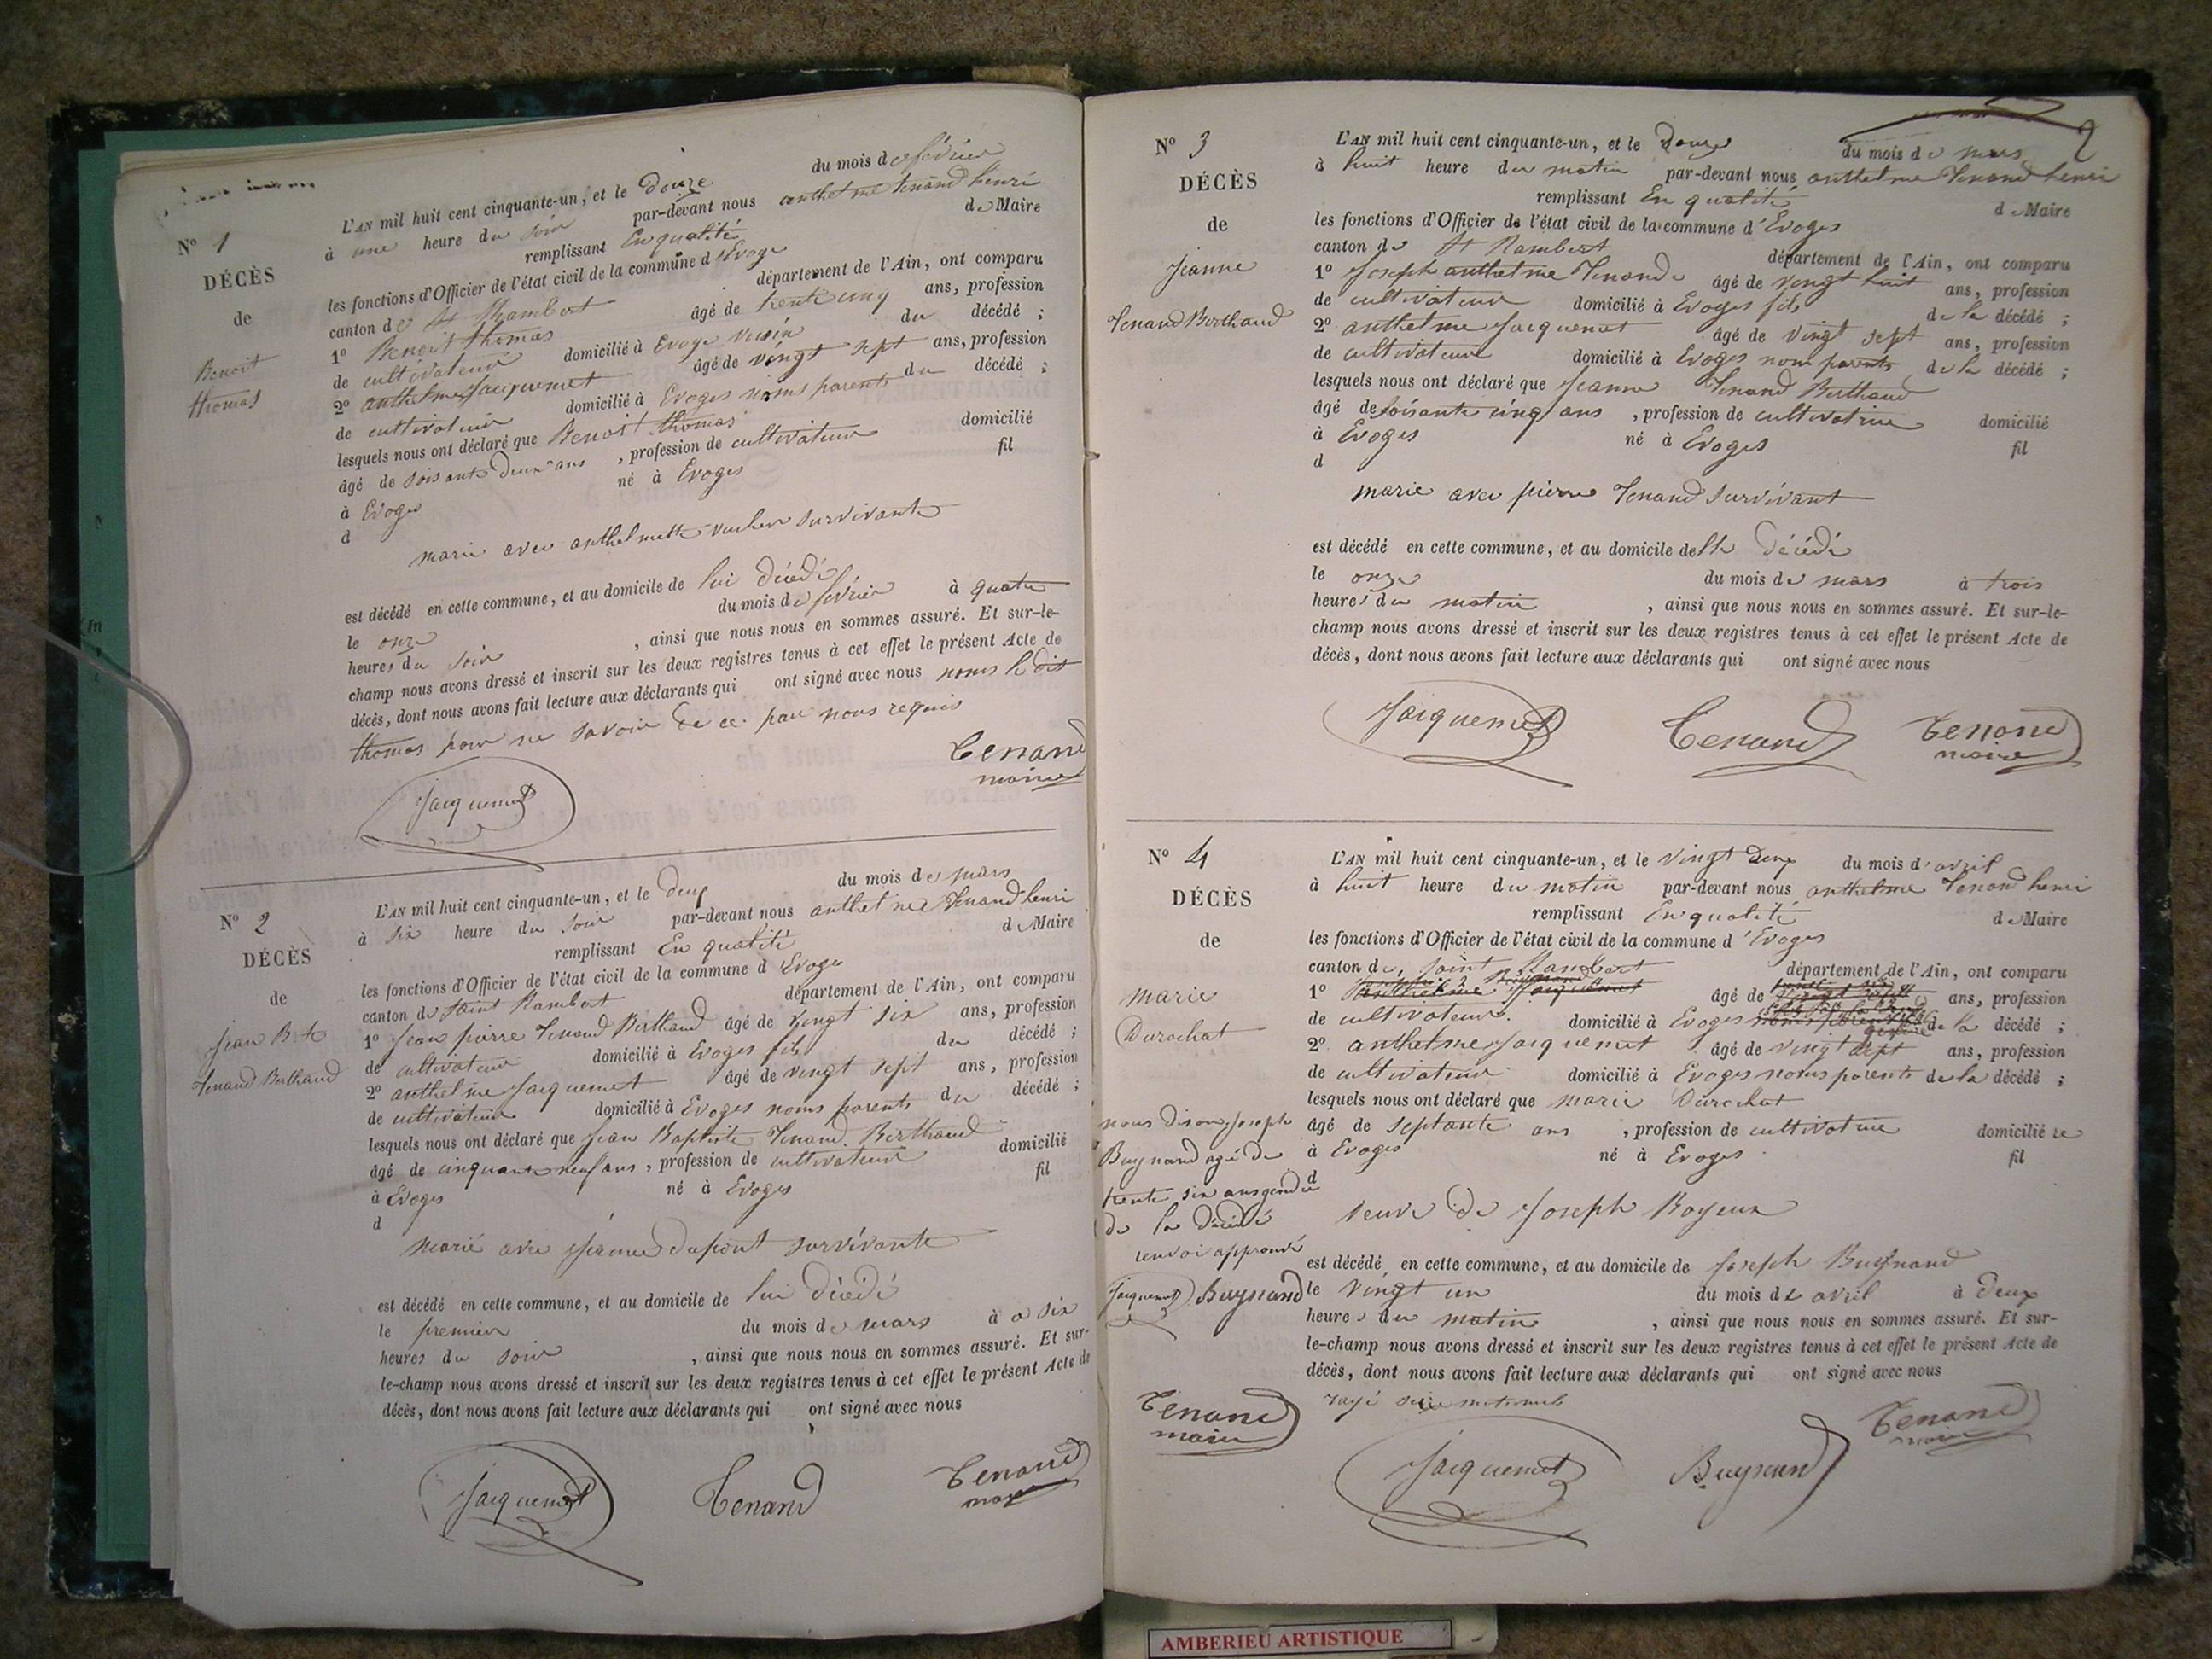 N° 1
DÉCÈS
de
Benoit
thomas
L'AN mil huit cent cinquante-un, et le douze du mois de février
à une heure du soir par-devant nous anthelme tenand henri
remplissant En qualité de Maire
les fonctions d'Officier de l'état civil de la commune d'Evoge
canton de St Rambert département de l'Ain, ont comparu
1° Benoit thomas âgé de trente cinq ans, profession
de cultivateur domicilié à Evoge voisin du décédé ;
2° anthelme Jacquemet âgé de vingt sept ans, profession
de cultivateur domicilié à Evoges noms parents du décédé ;
lesquels nous ont déclaré que Benoit thomas
âgé de soisante deux ans , profession de cultivateur domicilié
à Evoges né à Evoges fil
d
marie avec anthelmette vucher survivante
est décédé en cette commune, et au domicile de lui décédé
le onze du mois de février à quatre
heures du soir , ainsi que nous nous en sommes assuré. Et sur-le-
champ nous avons dressé et inscrit sur les deux registres tenus à cet effet le présent Acte de
décès, dont nous avons fait lecture aux déclarants qui ont signé avec nous noms le dit
thomas pour ne savoir de ce par nous requis
Tenand
maire
Jacquemet
N° 2
DÉCÈS
de
Jean B.te
Tenand Berthaud
L'AN mil huit cent cinquante-un, et le deux du mois de mars
à six heure du soir par-devant nous anthelme Tenand henri
remplissant En qualité de Maire
les fonctions d'Officier de l'état civil de la commune d'Evoge
canton de Saint Rambert département de l'Ain, ont comparu
1° Jean pierre Tenand Berthaud âgé de vingt six ans, profession
de cultivateur domicilié à Evoges fils du décédé ;
2° anthelme Jacquemet âgé de vingt sept ans, profession
de cultivateur domicilié à Evoges noms parents du décédé ;
lesquels nous ont déclaré que Jean Baptiste Tenand Berthaud
âgé de cinquante neuf ans , profession de cultivateur domicilié
à Evoges né à Evoges fil
d
marié avec Jeanne dupont survivante
est décédé en cette commune, et au domicile de lui décédé
le premier du mois de mars à a six
heures du soir , ainsi que nous nous en sommes assuré. Et sur-
le-champ nous avons dressé et inscrit sur les deux registres tenus à cet effet le présent Acte de
décès, dont nous avons fait lecture aux déclarants qui ont signé avec nous
Jacquemet Tenand Tenand
maire
2
N° 3
DÉCÈS
de
Jeanne
Tenand Berthaud
L'AN mil huit cent cinquante-un, et le douze du mois de mars
à huit heure du matin par-devant nous anthelme Tenand henri
remplissant En qualité de Maire
les fonctions d'Officier de l'état civil de la commune d'Evoges
canton de St Rambert département de l'Ain, ont comparu
1° Joseph anthelme Tenand âgé de vingt huit ans, profession
de cultivateur domicilié à Evoges fils de la décédé ;
2° anthelme Jacquemet âgé de vingt sept ans, profession
de cultivateur domicilié à Evoges nom parents de la décédé ;
lesquels nous ont déclaré que Jeanne Tenand Berthaud
âgé de soisante cinq ans , profession de cultivatrice domicilié
à Evoges né à Evoges fil
d
marie avec pierre Tenand survivant
est décédé en cette commune, et au domicile de la décédé
le onze du mois de mars à trois
heures du matin , ainsi que nous nous en sommes assuré. Et sur-le-
champ nous avons dressé et inscrit sur les deux registres tenus à cet effet le présent Acte de
décès, dont nous avons fait lecture aux déclarants qui ont signé avec nous
Jacquemet Tenand Tenand
maire
N° 4
DÉCÈS
de
marie
Durochat
L'AN mil huit cent cinquante-un, et le vingt deux du mois d'avril
à huit heure du matin par-devant nous anthelme Tenand henri
remplissant En qualité de Maire
les fonctions d'Officier de l'état civil de la commune d'Evoges
canton de Saint Rambert département de l'Ain, ont comparu
1° anthelme Jacquemet âgé de vingt sept ans, profession
de cultivateur domicilié à Evoges noms parents de la décédé ;
2° anthelme Jacquemet âgé de vingt sept ans, profession
de cultivateur domicilié à Evoges noms parents de la décédé ;
lesquels nous ont déclaré que marie Durochat
âgé de septante ans , profession de cultivatrice domicilié
à Evoges né à Evoges fil
d
veuve de Joseph Royeux
est décédé en cette commune, et au domicile de Joseph Buynand
le vingt un du mois de avril à deux
heures du matin , ainsi que nous nous en sommes assuré. Et sur-
le-champ nous avons dressé et inscrit sur les deux registres tenus à cet effet le présent Acte de
décès, dont nous avons fait lecture aux déclarants qui ont signé avec nous
nous dison Joseph
Buynand agé de
trente six ans gendre
de la décédé
renvoi approuvé
Jacquemet Buynand
Tenand
maire
rayé
Jacquemet Buynand Tenand
maire
AMBERIEU ARTISTIQUE